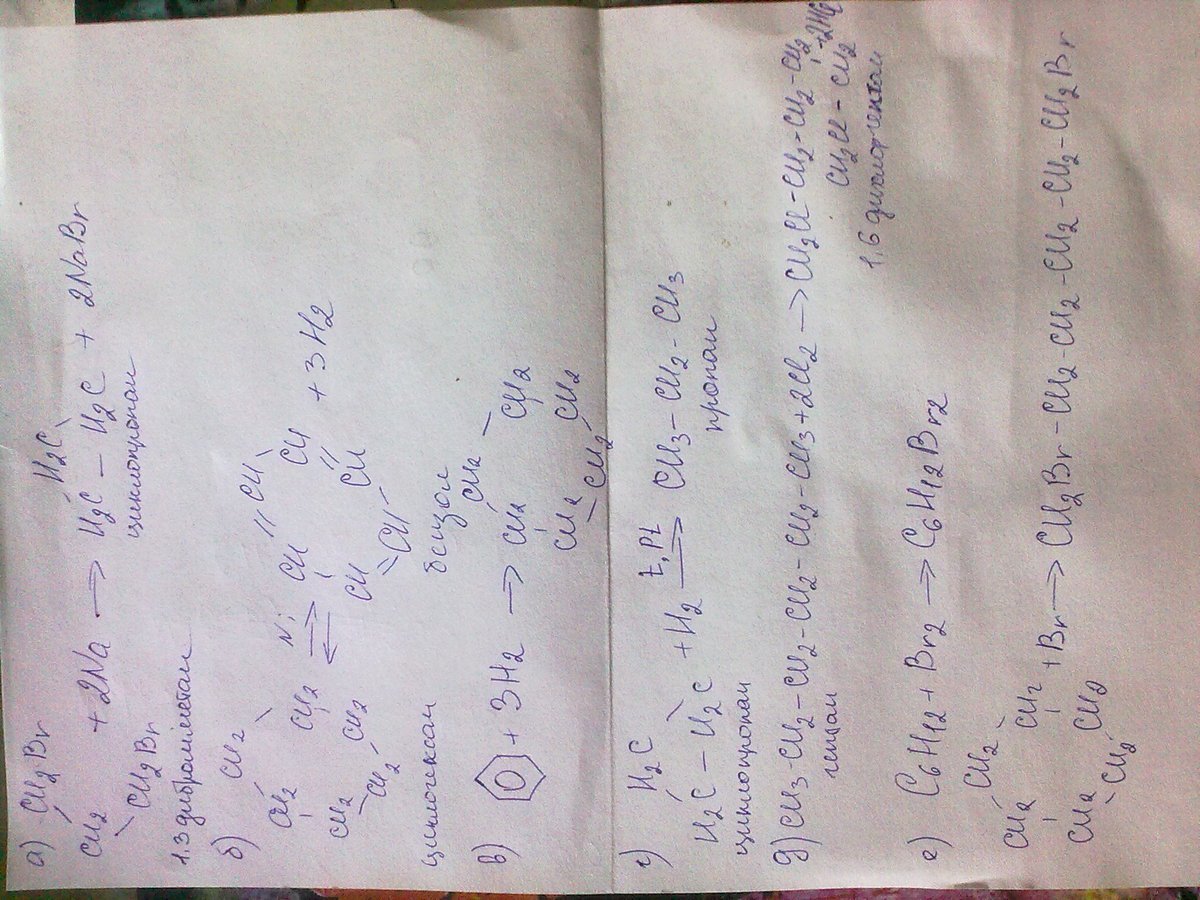 а) CH2Br
CH2 + 2Na → H2C – H2C + 2NaBr
H2C
CH2Br
циклопропан
1.3 дибромметан
б) CH2 CH2 CH2 Ni ⇌ CH CH CH + 3H2
CH2 CH2 CH2 CH CH CH
циклогексан бензол
в) + 3H2 → CH2 CH2 CH2
CH2 CH2 CH2
г) H2C
H2C – H2C + H2 t, Pt → CH3 – CH2 – CH3
циклопропан пропан
д) CH3-CH2-CH2-CH2-CH2-CH2-CH3+2Cl2 → CH2Cl-CH2-CH2-CH2
гептан CH2Cl – CH2
1,6 дихлоргептан
е) C6H12 + Br2 → C6H12Br2
CH2 CH2 CH2
+ Br → CH2Br – CH2 – CH2 – CH2 – CH2 – CH2Br
CH2 CH2